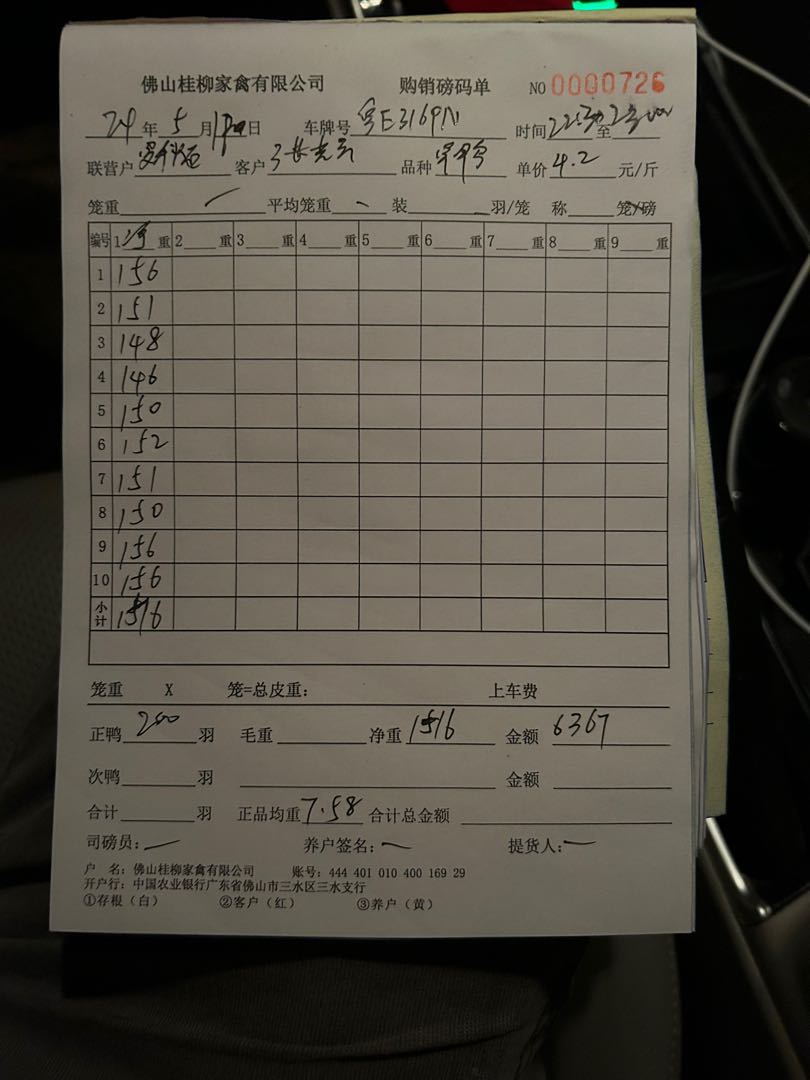 佛山桂柳家禽有限公司 购销磅码单 NO 0000726
24 年 5 月 日 车牌号 粤E3169N 时间 22:30 至
联营户 客户 品种 单价 4.2 元/斤
笼重 平均笼重 装 羽/笼 称 笼/磅
编号 1 重 2 重 3 重 4 重 5 重 6 重 7 重 8 重 9 重
1 156
2 151
3 148
4 146
5 150
6 152
7 151
8 150
9 156
10 156
小计 1516
笼重 X 笼=总皮重: 上车费
正鸭 200 羽 毛重 净重 1516 金额 6367
次鸭 羽 金额
合计 羽 正品均重 7.58 合计总金额
司磅员: 养户签名: 提货人:
户 名: 佛山桂柳家禽有限公司 账号: 444 401 010 400 169 29
开户行: 中国农业银行广东省佛山市三水区三水支行
①存根(白) ②客户(红) ③养户(黄)